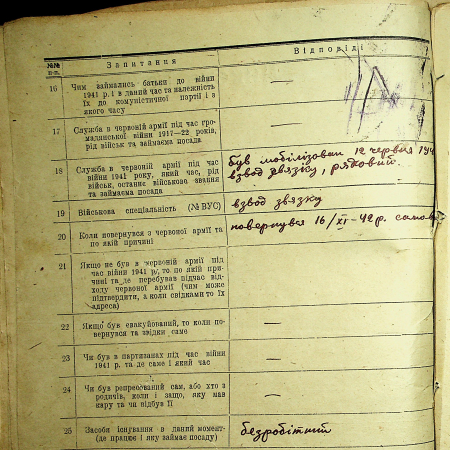 №№ п-п.
Запитання
Відповіді
16
Чим займались батьки до війни
1941 р. і в даний час та належність
їх до комуністичної партії і з
якого часу
—
17
Служба в червоній армії під час гро-
мадянської війни 1917—22 років,
рід військ та займаєма посада
—
18
Служба в червоній армії під час
війни 1941 року, який час, рід
військ, останнє військове звання
та займаєма посада
був мобілізован 12 червня 194
взвод звязку, рядовий.
19
Військова спеціальність (№ ВУС)
взвод звязку
20
Коли повернувся з червоної армії та
по якій причині
повернувся 16/XI-42р.
21
Якщо не був в червоній армії під
час війни 1941 р., то по якій при-
чині та де перебував підчас від-
ходу червоної армії (чим може
підтвердити, а коли свідками то їх
адреса)
—
22
Якщо був евакуйований, то коли по-
вернувся та звідки саме
—
23
Чи був в партизанах під час війни
1941 р. та де саме і який час
—
24
Чи був репресований сам, або хто з
родичів, коли і защо, яку мав
кару та чи відбув її
—
25
Засоби існування в даний момент-
(де працює і яку займає посаду)
безробітний